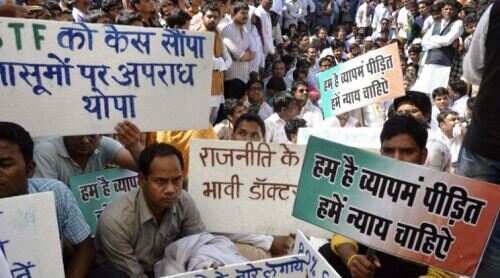 STF को केस सौंपा
मासूमों पर अपराध
थोपा
हम है व्यापमं पीड़ित
हमें न्याय चाहिऐ
राजनीति के
भावी डॉक्टर
हम है
हम है व्यापमं पीड़ित
हमें न्याय चाहिऐ